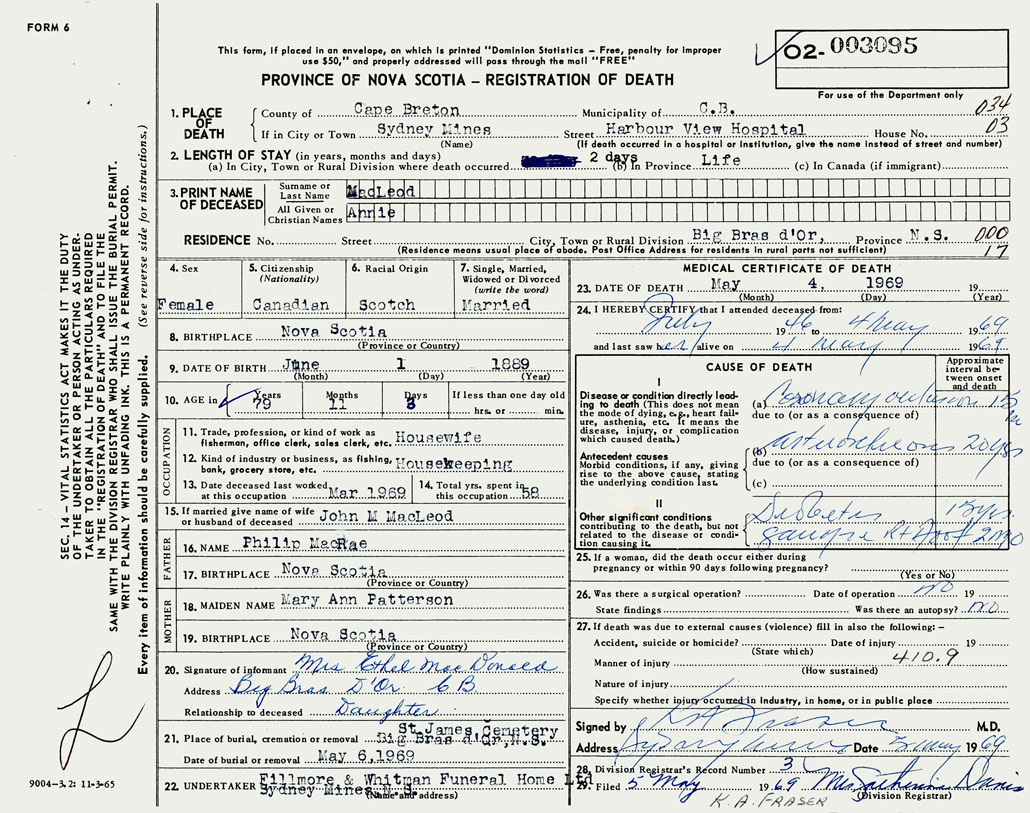 FORM 6
This form, if placed in an envelope, on which is printed "Dominion Statistics — Free, penalty for improper
use $50," and properly addressed will pass through the mail "FREE"
PROVINCE OF NOVA SCOTIA — REGISTRATION OF DEATH
O2- 003095
For use of the Department only
1. PLACE OF DEATH
County of Cape Breton Municipality of C.B. 034
If in City or Town Sydney Mines Street Harbour View Hospital House No. 03
(Name) (If death occurred in a hospital or institution, give the name instead of street and number)
2. LENGTH OF STAY (in years, months and days)
(a) In City, Town or Rural Division where death occurred 2 days (b) In Province Life (c) In Canada (if immigrant)
3. PRINT NAME OF DECEASED
Surname or Last Name MacLeod
All Given or Christian Names Annie
RESIDENCE No. Street City, Town or Rural Division Big Bras d'Or, Province N.S. 000
(Residence means usual place of abode. Post Office Address for residents in rural parts not sufficient) 17
4. Sex Female
5. Citizenship (Nationality) Canadian
6. Racial Origin Scotch
7. Single, Married, Widowed or Divorced (write the word) Married
8. BIRTHPLACE Nova Scotia
(Province or Country)
9. DATE OF BIRTH June 1 1889
(Month) (Day) (Year)
10. AGE in Years Months Days If less than one day old
79 11 3 hrs. or min.
OCCUPATION
11. Trade, profession, or kind of work as fisherman, office clerk, sales clerk, etc. Housewife
12. Kind of industry or business, as fishing, bank, grocery store, etc. Housekeeping
13. Date deceased last worked at this occupation Mar 1969
14. Total yrs. spent in this occupation 58
15. If married give name of wife or husband of deceased John M MacLeod
FATHER
16. NAME Philip MacRae
17. BIRTHPLACE Nova Scotia
(Province or Country)
MOTHER
18. MAIDEN NAME Mary Ann Patterson
19. BIRTHPLACE Nova Scotia
(Province or Country)
20. Signature of informant Mrs Ethel MacDonald
Address Big Bras D'Or C B.
Relationship to deceased Daughter
21. Place of burial, cremation or removal St James Cemetery
Big Bras d'Or, N.S.
Date of burial or removal May 6, 1969
22. UNDERTAKER Fillmore & Whitman Funeral Home Ltd
Sydney Mines N.S.
(Name and address)
MEDICAL CERTIFICATE OF DEATH
23. DATE OF DEATH May 4, 1969 19
(Month) (Day) (Year)
24. I HEREBY CERTIFY that I attended deceased from:
July 1946 to 4 May 1969
and last saw her alive on 4 May 1969
CAUSE OF DEATH
Approximate interval between onset and death
I
Disease or condition directly leading to death (This does not mean the mode of dying, e.g., heart failure, asthenia, etc. It means the disease, injury, or complication which caused death.)
(a) Coronary occlusion
due to (or as a consequence of)
Antecedent causes
Morbid conditions, if any, giving rise to the above cause, stating the underlying condition last.
(b) 20 yrs
due to (or as a consequence of)
(c)
II
Other significant conditions contributing to the death, but not related to the disease or condition causing it.
Diabetes 15 yrs
gangrene Rt foot 2 mo
25. If a woman, did the death occur either during pregnancy or within 90 days following pregnancy?
(Yes or No)
26. Was there a surgical operation? Date of operation no 19
State findings Was there an autopsy? no
27. If death was due to external causes (violence) fill in also the following: —
Accident, suicide or homicide? Date of injury 19
(State which) 410.9
Manner of injury
(How sustained)
Nature of injury
Specify whether injury occurred in industry, in home, or in public place
Signed by K A Fraser M.D.
Address Sydney Mines Date 5 May 1969
28. Division Registrar's Record Number 3
29. Filed 5 May 1969 Mrs Catherine Davis
(Division Registrar)
K.A. FRASER
SEC. 14 — VITAL STATISTICS ACT MAKES IT THE DUTY
OF THE UNDERTAKER OR PERSON ACTING AS UNDER-
TAKER TO OBTAIN ALL THE PARTICULARS REQUIRED
IN THE "REGISTRATION OF DEATH" AND TO FILE THE
SAME WITH THE DIVISION REGISTRAR WHO SHALL ISSUE THE BURIAL PERMIT.
WRITE PLAINLY WITH UNFADING INK. THIS IS A PERMANENT RECORD.
Every item of information should be carefully supplied. (See reverse side for instructions.)
9004—3.2: 11-3-65